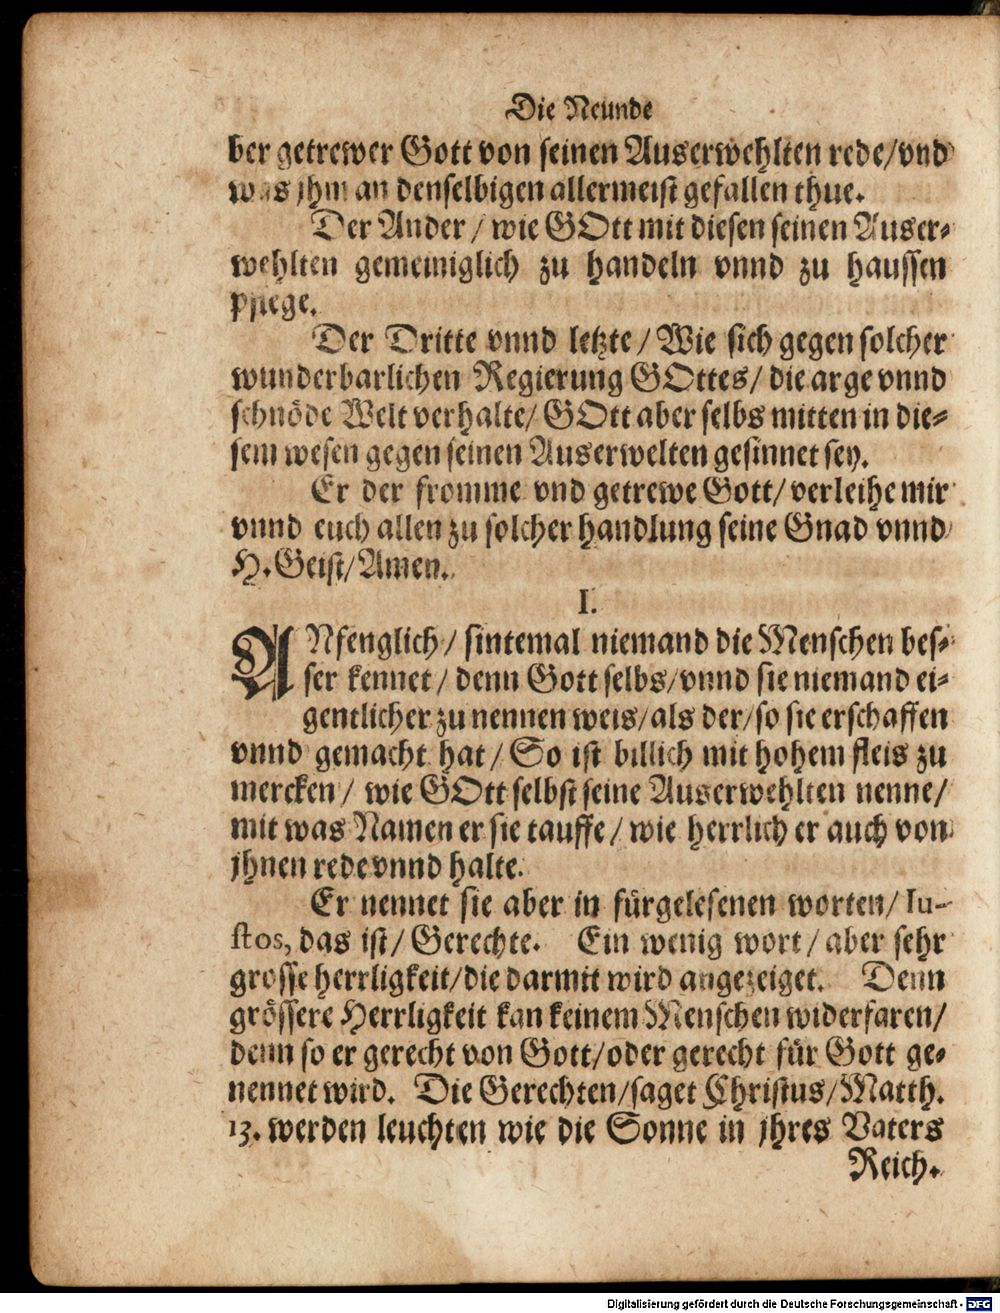 Die Neunde
ber getrewer Gott von seinen Auserwehlten rede/vnd
was jhm an denselbigen allermeist gefallen thue.
Der Ander / wie GOtt mit diesen seinen Auser-
wehlten gemeiniglich zu handeln vnnd zu haussen
pflege.
Der Dritte vnnd letzte / Wie sich gegen solcher
wunderbarlichen Regierung GOttes / die arge vnnd
schnöde Welt verhalte/ GOtt aber selbs mitten in die-
sem wesen gegen seinen Auserwelten gesinnet sey.
Er der fromme vnd getrewe Gott/ verleihe mir
vnnd euch allen zu solcher handlung seine Gnad vnnd
H. Geist/ Amen.
I.
ANfenglich / sintemal niemand die Menschen bes-
ser kennet / denn Gott selbs/vnnd sie niemand ei-
gentlicher zu nennen weis/als der/so sie erschaffen
vnnd gemacht hat / So ist billich mit hohem fleis zu
mercken / wie GOtt selbst seine Auserwehlten nenne/
mit was Namen er sie tauffe / wie herrlich er auch von
jhnen rede vnnd halte.
Er nennet sie aber in fürgelesenen worten/ Iu-
stos, das ist/ Gerechte. Ein wenig wort / aber sehr
grosse herrligkeit/die darmit wird angezeiget. Denn
grössere Herrligkeit kan keinem Menschen widerfaren/
denn so er gerecht von Gott/oder gerecht für Gott ge-
nennet wird. Die Gerechten/saget Christus/Matth.
13. werden leuchten wie die Sonne in jhres Vaters
Reich.
Digitalisierung gefördert durch die Deutsche Forschungsgemeinschaft - DFG